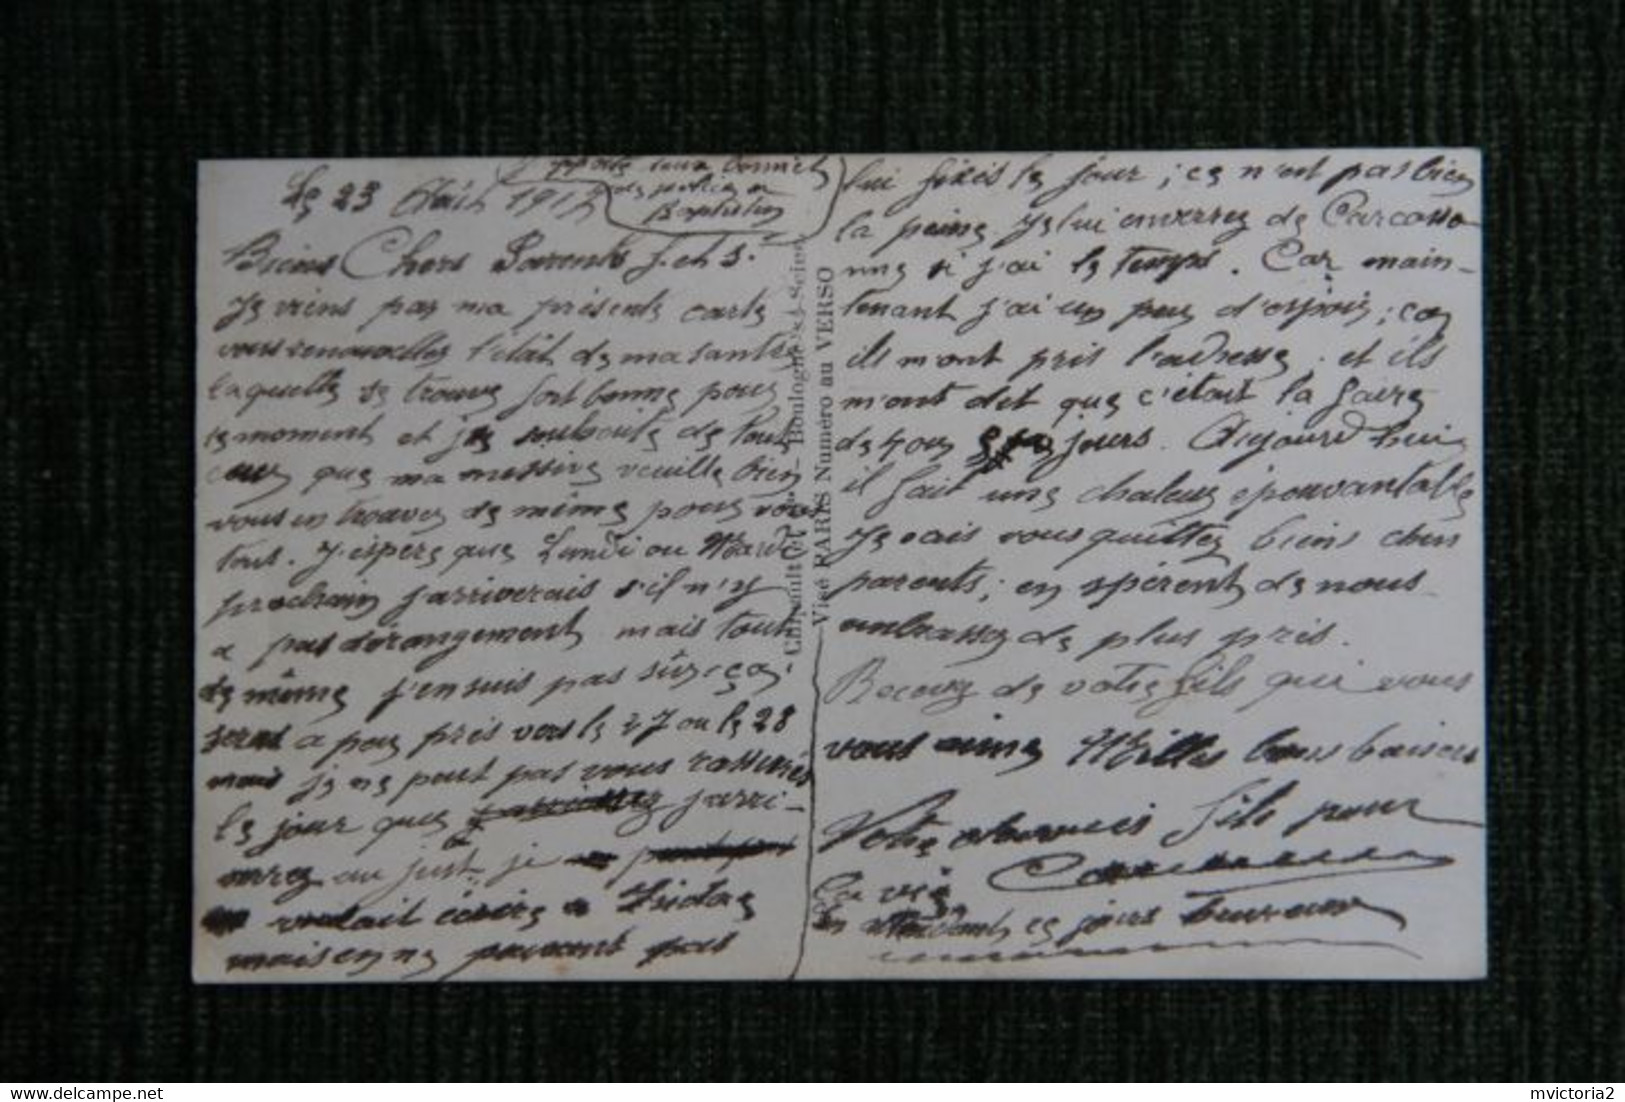 Le 23 Août 1917
Biens Chers Parents J. et J.
Je viens par ma présente carte
vous renouveller l'état de ma santée
laquelle se trouve fort bonne pour
le moment et je souhaite de tout
cœur que ma missive veuille bien
vous en trouver de même pour vous
tout. J'espère que Lundi ou Mardi
prochain j'arriverais s'il n'y
a pas dérangement mais tout
de même j'en suis pas sûr, ça
seras a peu près vers le 27 ou le 28
mais je ne peut pas vous rassurés
le jour que j'arri-
verez au just. je
voulait écrire a
mais en ne pouvant pas
lui fixés le jour ; ce n'ont pas bien
la peine. Je lui enverrez de Carcasso
nne si j'ai le temps. Car main-
tenant j'ai un peu d'espoir ; car
ils m'ont pris l'adresse ; et ils
m'ont dit que c'était la faire
de 4 ou 5 jours. Aujourd'hui
il fait une chaleur épouvantable
Je vais vous quitter biens chers
parents ; en espérent de nous
embrasser de plus près.
Recevez de votre fils qui vous
vous aime Milles bons baisers
Votre fils pour
la vie
en attendant ce jours heureux
Boulogne s/ Seine
Visé PARIS Numéro au VERSO
mvictoria2